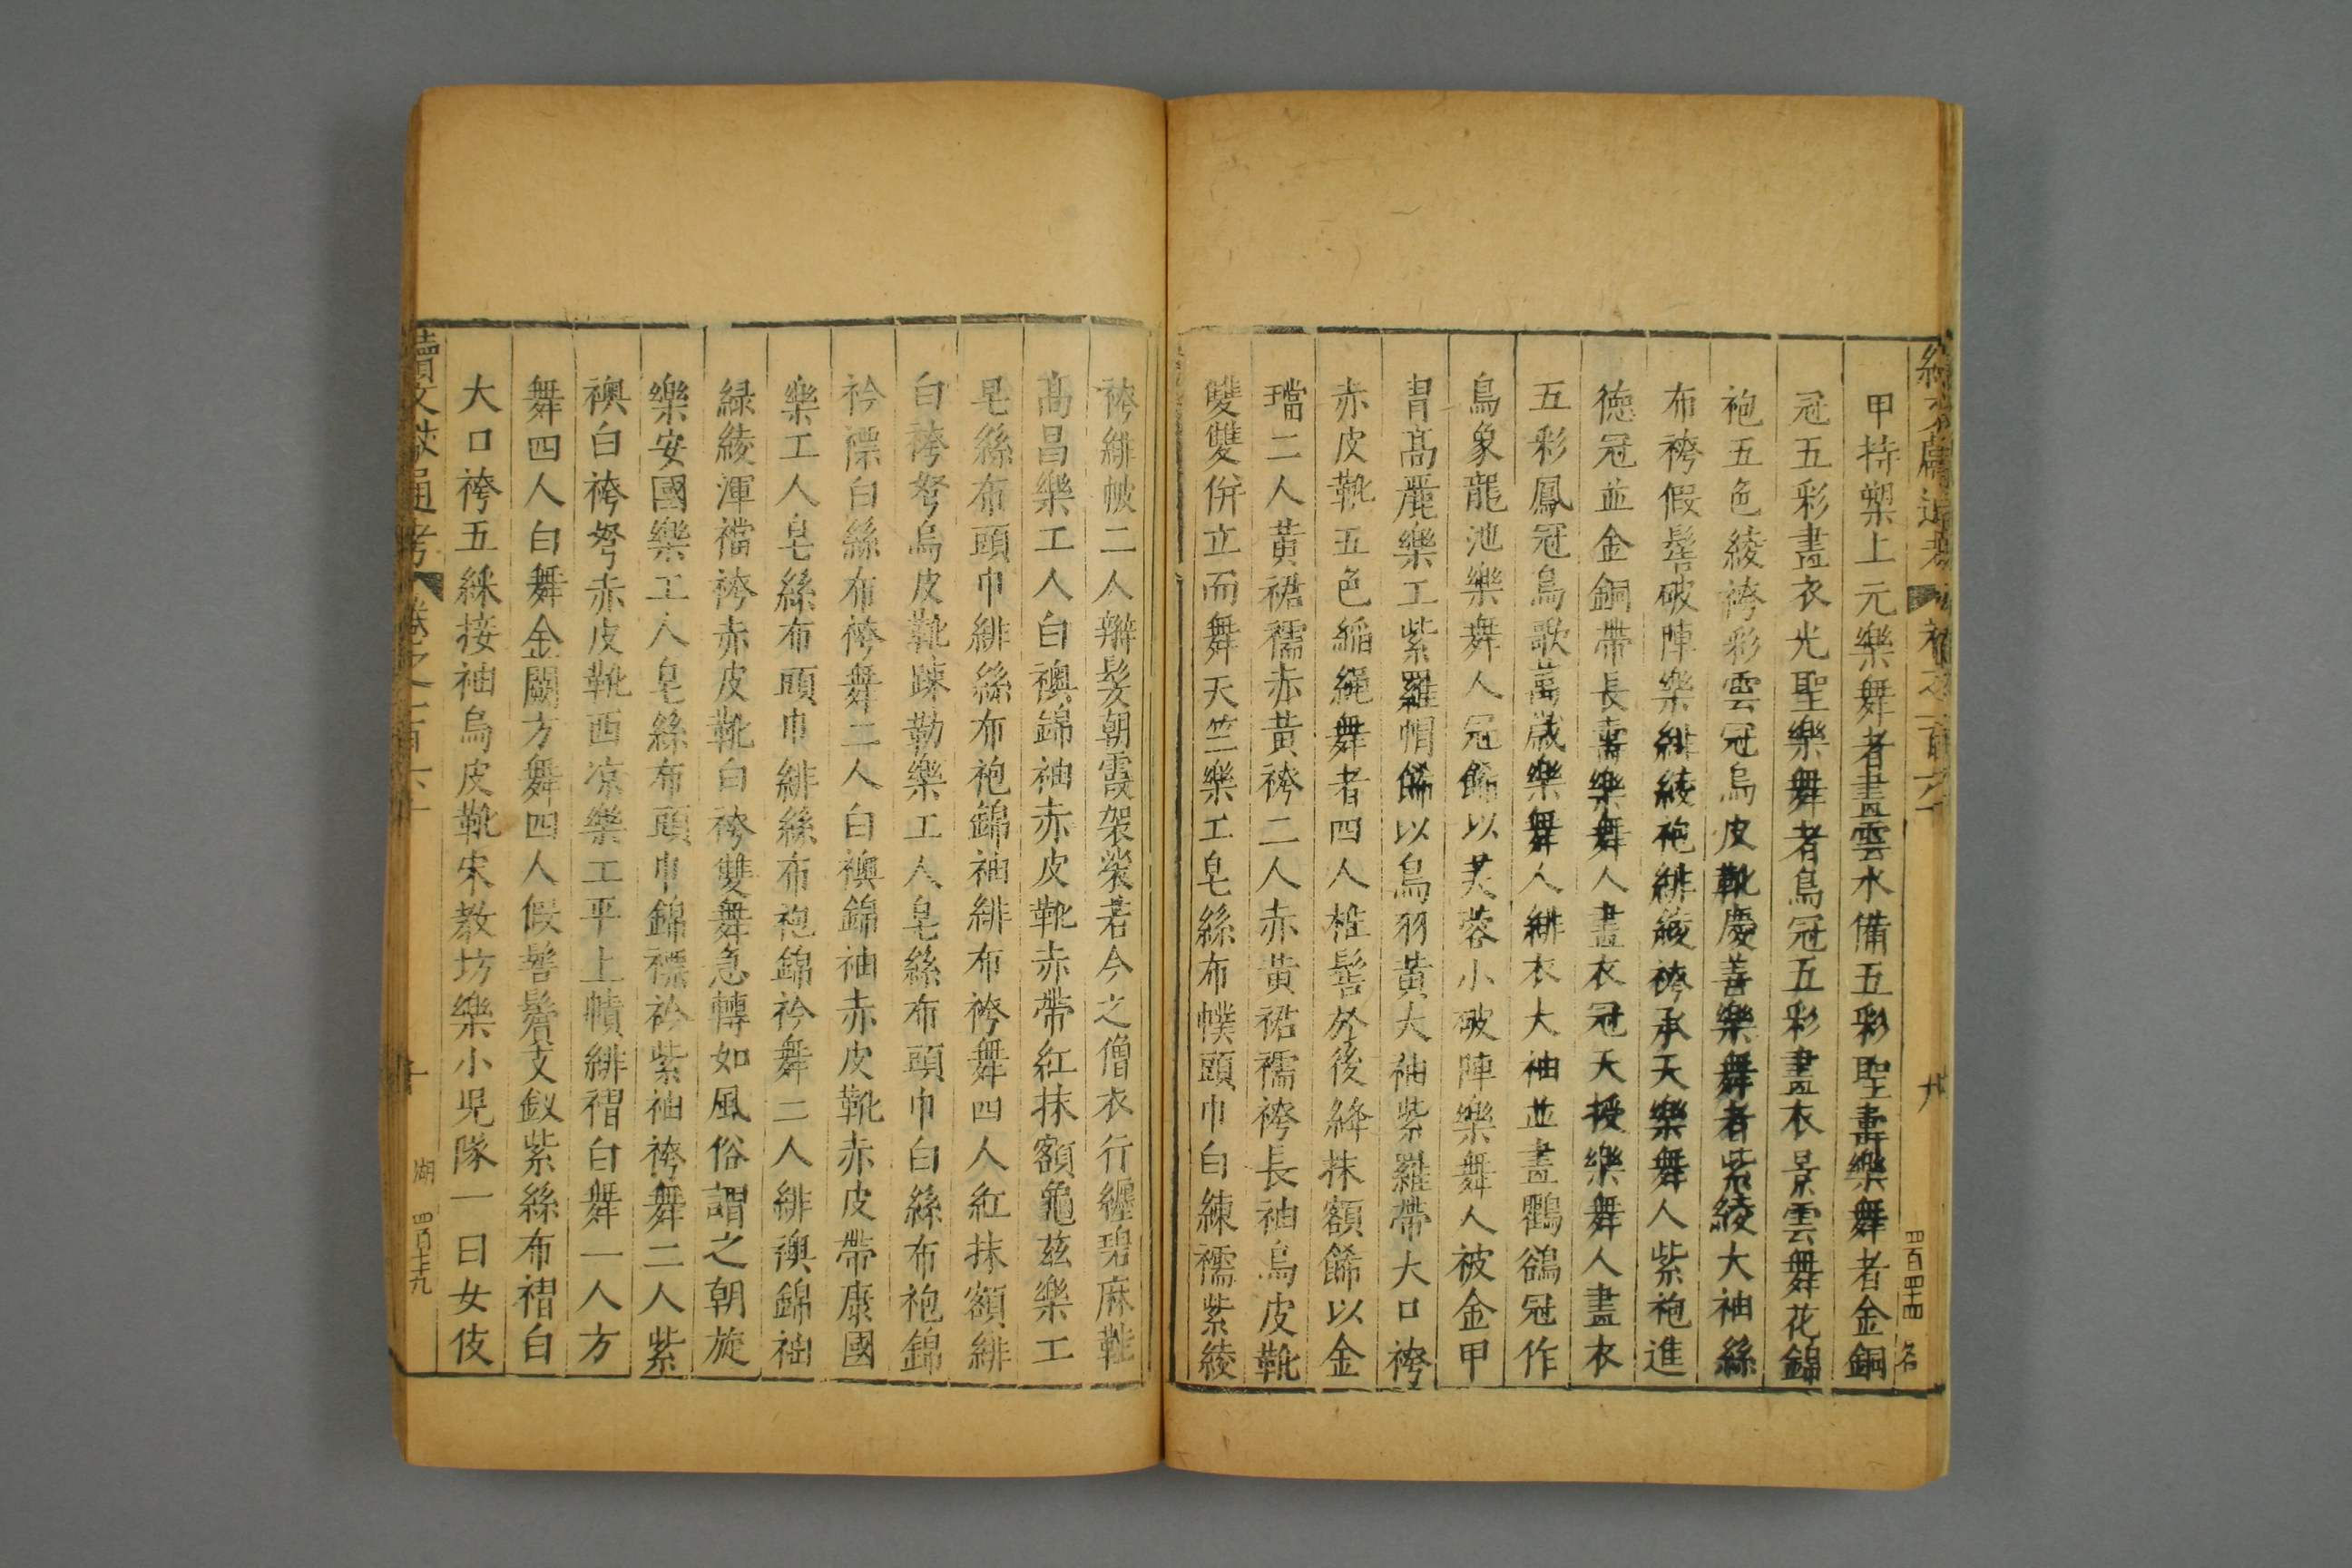 續文獻通考 卷之一百六十
九
甲持槊上元樂舞者畫雲水備五彩聖壽樂舞者金銅
冠五彩畫衣光聖樂舞者鳥冠五彩畫衣景雲舞花錦
袍五色綾袴彩雲冠烏皮靴慶善樂舞者紫綾大袖絲
布袴假髻破陣樂緋綾袍緋綾袴承天樂舞人紫袍進
德冠並金銅帶長壽樂舞人畫衣冠天授樂舞人畫衣
五彩鳳冠鳥歌萬歲樂舞人緋衣大袖並畫鸜鵒冠作
鳥象龍池樂舞人冠餙以芙蓉小破陣樂舞人被金甲
胄髙麗樂工紫羅帽餙以鳥羽黃大袖紫羅帶大口袴
赤皮靴五色縚繩舞者四人椎髻於後絳抹額餙以金
璫二人黃裙襦赤黃袴二人赤黃裙襦袴長袖烏皮靴
雙雙併立而舞天竺樂工皂絲布幞頭巾白練襦紫綾
袴緋帔二人辮髮朝霞袈裟若今之僧衣行纏碧麻鞋
髙昌樂工人白襖錦袖赤皮靴赤帶紅抹額龜茲樂工
皂絲布頭巾緋絲布袍錦袖緋布袴舞四人紅抹額緋
白袴帑烏皮靴踈勒樂工人皂絲布頭巾白絲布袍錦
衿褾白絲布袴舞二人白襖錦袖赤皮靴赤皮帶康國
樂工人皂絲布頭巾緋絲布袍錦衿舞二人緋襖錦袖
緑綾渾襠袴赤皮靴白袴雙舞急轉如風俗謂之朝旋
樂安國樂工人皂絲布頭巾錦褾衿紫袖袴舞二人紫
襖白袴帑赤皮靴西凉樂工平上幘緋褶白舞一人方
舞四人白舞金闕方舞四人假髻鬢支釵紫絲布褶白
大口袴五綵接袖烏皮靴宋教坊樂小兒隊一曰女伎
續文獻通考 卷之一百六十
十
湖